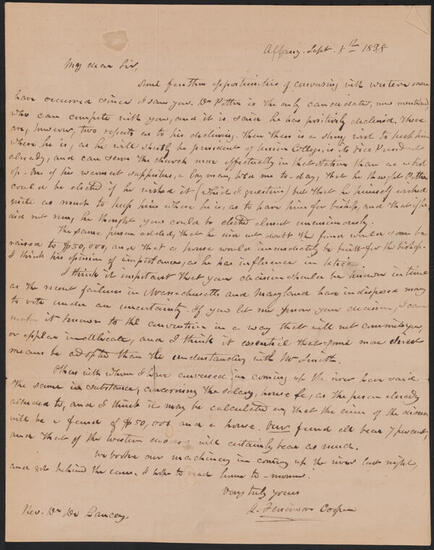 Albany, Sept. 5th 1838
My dear Sir,
Some further opportunities of conversing with western men
have occurred since I saw you. Dr Potter is the only candidate, now mentioned,
who can compete with you, and it is said he has positively declined. There
are, however, two reports as to his declining. Then there is a strong wish to keep him
where he is, as he will shortly be president of Union College, is its Vice President
already, and can serve the church more effectually in that station than as a bishop.
One of his warmest supporters, a layman, told me to-day, that he thought Potter
could be elected if he wished it (which I question) but that he himself wished
quite as much to keep him where he is, as to have him for bishop, and that if he
did not run, he thought you could be elected almost unanimously.
The same person added, that he did not doubt the fund would soon be
raised to $50,000, and that a house would immediately be built for the bishop.
I think his opinion of importance, as he has influence in Utica.
I think it important that your decision should be known in time
as the recent failures in Massachusetts and Maryland have indisposed many
to vote under an uncertainty. If you let me know your decision, I can
make it known to the convention in a way that will not commit you,
or appear indelicate, and I think it essential that some more direct
means be adopted than the understanding with Mr Smith.
Others with whom I have conversed in coming up the river have said
the same in substance, concerning the salary, house &c, as the person already
alluded to, and I think it may be calculated on, that the end of the
will be a fund of $50,000 and a house. Our fund all bear 7 percent,
and that of the western diocese will certainly bear as much.
We broke our machinery in coming up the river last night,
and are behind the cars. I hope to reach home to-morrow.
Very truly yours
J. Fenimore Cooper
Rev. Dr De Lancey.